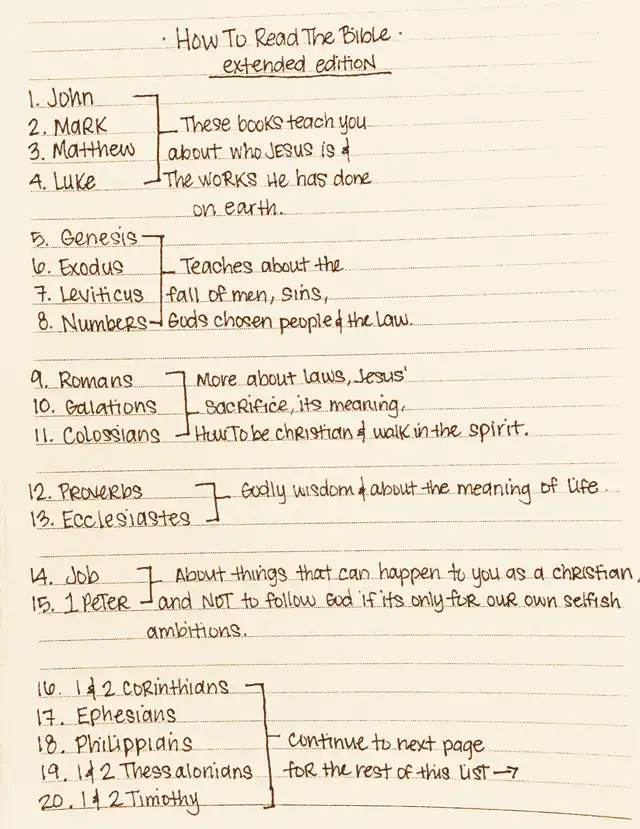 · How To Read The Bible ·
extended edition
1. John
2. Mark
3. Matthew
4. Luke
These books teach you
about who JESUS is &
The works He has done
on earth.
5. Genesis
6. Exodus
7. Leviticus
8. Numbers
Teaches about the
fall of men, sins,
Gods chosen people & the law.
9. Romans
10. Galations
11. Colossians
More about laws, Jesus'
sacrifice, its meaning,
How To be christian & walk in the spirit.
12. Proverbs
13. Ecclesiastes
Godly wisdom & about the meaning of life.
14. Job
15. 1 Peter
About things that can happen to you as a christian,
and NOT to follow God if its only for our own selfish
ambitions.
16. 1 & 2 Corinthians
17. Ephesians
18. Philippians
19. 1 & 2 Thessalonians
20. 1 & 2 Timothy
continue to next page
for the rest of this list →